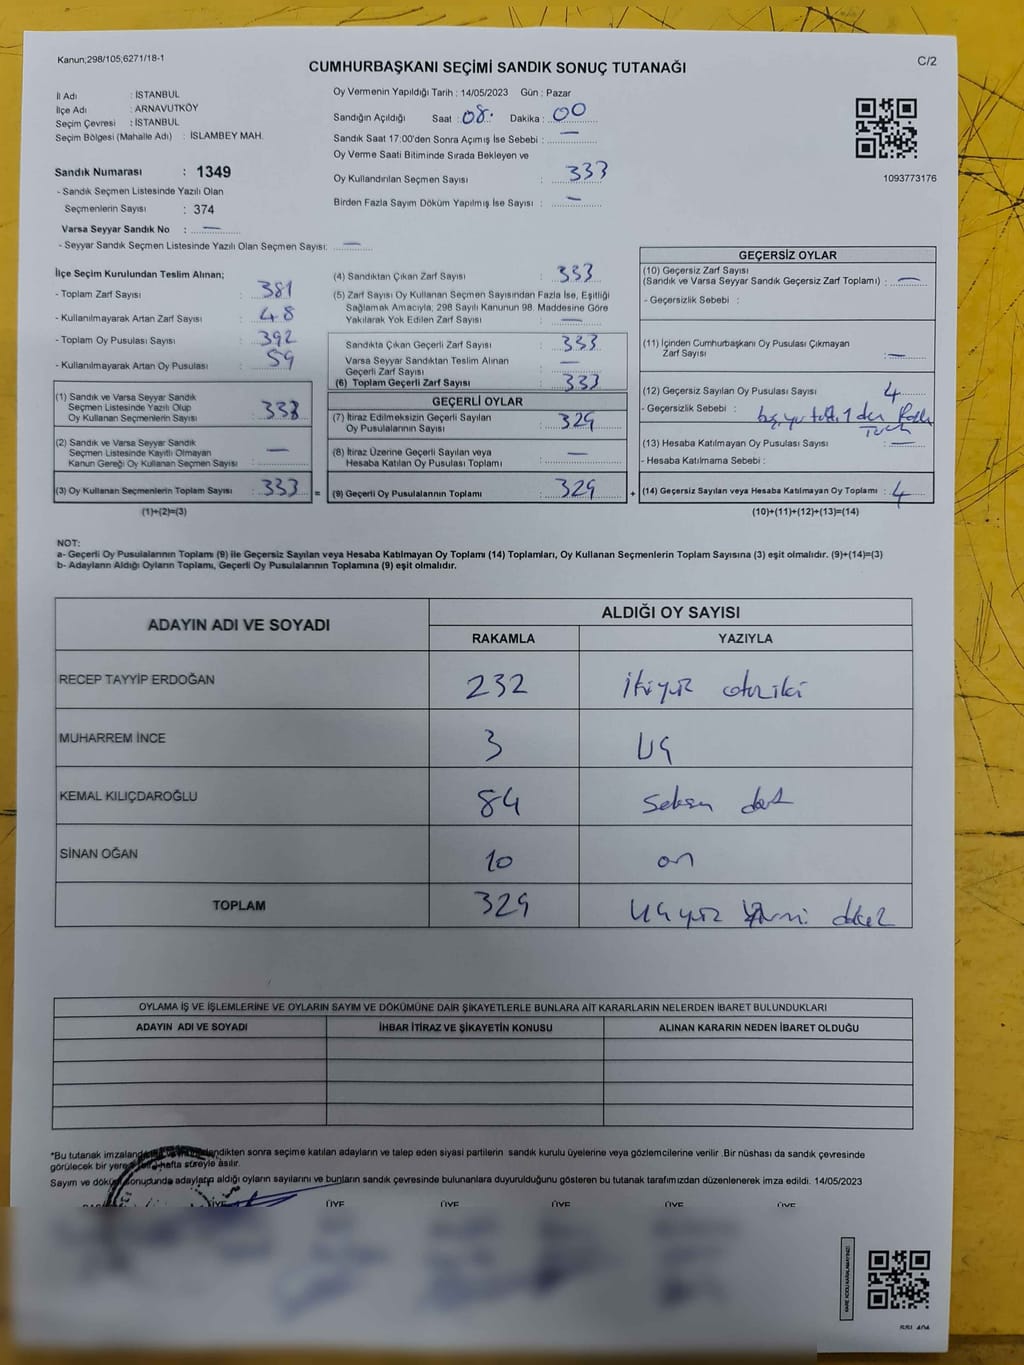 Kanun;298/105;6271/18-1
C/2
CUMHURBAŞKANI SEÇİMİ SANDIK SONUÇ TUTANAĞI
İl Adı : İSTANBUL
İlçe Adı : ARNAVUTKÖY
Seçim Çevresi : İSTANBUL
Seçim Bölgesi (Mahalle Adı) : İSLAMBEY MAH.
Sandık Numarası : 1349
- Sandık Seçmen Listesinde Yazılı Olan
Seçmenlerin Sayısı : 374
Varsa Seyyar Sandık No : —
- Seyyar Sandık Seçmen Listesinde Yazılı Olan Seçmen Sayısı: —
Oy Vermenin Yapıldığı Tarih : 14/05/2023 Gün : Pazar
Sandığın Açıldığı Saat : 08. Dakika : 00
Sandık Saat 17:00'den Sonra Açımış İse Sebebi : —
Oy Verme Saati Bitiminde Sırada Bekleyen ve
Oy Kullandırılan Seçmen Sayısı : 333
Birden Fazla Sayım Döküm Yapılmış İse Sayısı : —
1093773176
İlçe Seçim Kurulundan Teslim Alınan;
- Toplam Zarf Sayısı : 381
- Kullanılmayarak Artan Zarf Sayısı : 48
- Toplam Oy Pusulası Sayısı : 392
- Kullanılmayarak Artan Oy Pusulası : 59
(1) Sandık ve Varsa Seyyar Sandık
Seçmen Listesinde Yazılı Olup
Oy Kullanan Seçmenlerin Sayısı : 333
(2) Sandık ve Varsa Seyyar Sandık
Seçmen Listesinde Kayıtlı Olmayan
Kanun Gereği Oy Kullanan Seçmen Sayısı : —
(3) Oy Kullanan Seçmenlerin Toplam Sayısı : 333 =
(1)+(2)=(3)
(4) Sandıktan Çıkan Zarf Sayısı : 333
(5) Zarf Sayısı Oy Kullanan Seçmen Sayısından Fazla İse, Eşitliği
Sağlamak Amacıyla; 298 Sayılı Kanunun 98. Maddesine Göre
Yakılarak Yok Edilen Zarf Sayısı : —
Sandıkta Çıkan Geçerli Zarf Sayısı : 333
Varsa Seyyar Sandıktan Teslim Alınan
Geçerli Zarf Sayısı : —
(6) Toplam Geçerli Zarf Sayısı : 333
GEÇERLİ OYLAR
(7) İtiraz Edilmeksizin Geçerli Sayılan
Oy Pusulalarının Sayısı : 329
(8) İtiraz Üzerine Geçerli Sayılan veya
Hesaba Katılan Oy Pusulası Toplamı : —
(9) Geçerli Oy Pusulalarının Toplamı : 329 +
GEÇERSİZ OYLAR
(10) Geçersiz Zarf Sayısı
(Sandık ve Varsa Seyyar Sandık Geçersiz Zarf Toplamı) : —
- Geçersizlik Sebebi :
(11) İçinden Cumhurbaşkanı Oy Pusulası Çıkmayan
Zarf Sayısı : —
(12) Geçersiz Sayılan Oy Pusulası Sayısı : 4
- Geçersizlik Sebebi :
(13) Hesaba Katılmayan Oy Pusulası Sayısı : —
- Hesaba Katılmama Sebebi :
(14) Geçersiz Sayılan veya Hesaba Katılmayan Oy Toplamı : 4
(10)+(11)+(12)+(13)=(14)
NOT:
a- Geçerli Oy Pusulalarının Toplamı (9) ile Geçersiz Sayılan veya Hesaba Katılmayan Oy Toplamı (14) Toplamları, Oy Kullanan Seçmenlerin Toplam Sayısına (3) eşit olmalıdır. (9)+(14)=(3)
b- Adayların Aldığı Oyların Toplamı, Geçerli Oy Pusulalarının Toplamına (9) eşit olmalıdır.
ADAYIN ADI VE SOYADI
ALDIĞI OY SAYISI
RAKAMLA YAZIYLA
RECEP TAYYİP ERDOĞAN 232 ikiyüz otuziki
MUHARREM İNCE 3 üç
KEMAL KILIÇDAROĞLU 84 seksen dört
SİNAN OĞAN 10 on
TOPLAM 329 üçyüz yirmi dokuz
OYLAMA İŞ VE İŞLEMLERİNE VE OYLARIN SAYIM VE DÖKÜMÜNE DAİR ŞİKAYETLERLE BUNLARA AİT KARARLARIN NELERDEN İBARET BULUNDUKLARI
ADAYIN ADI VE SOYADI İHBAR İTİRAZ VE ŞİKAYETİN KONUSU ALINAN KARARIN NEDEN İBARET OLDUĞU
*Bu tutanak sonra seçime katılan adayların ve talep eden siyasi partilerin sandık kurulu üyelerine veya gözlemcilerine verilir .Bir nüshası da sandık çevresinde
görülecek bir yere hafta süreyle asılır.
Sayım ve döküm sonucunda adayların aldığı oyların sayılarını ve bunların sandık çevresinde bulunanlara duyurulduğunu gösteren bu tutanak tarafımızdan düzenlenerek imza edildi. 14/05/2023
ÜYE ÜYE ÜYE ÜYE ÜYE
KARE KODU KARALAMAYINIZ!